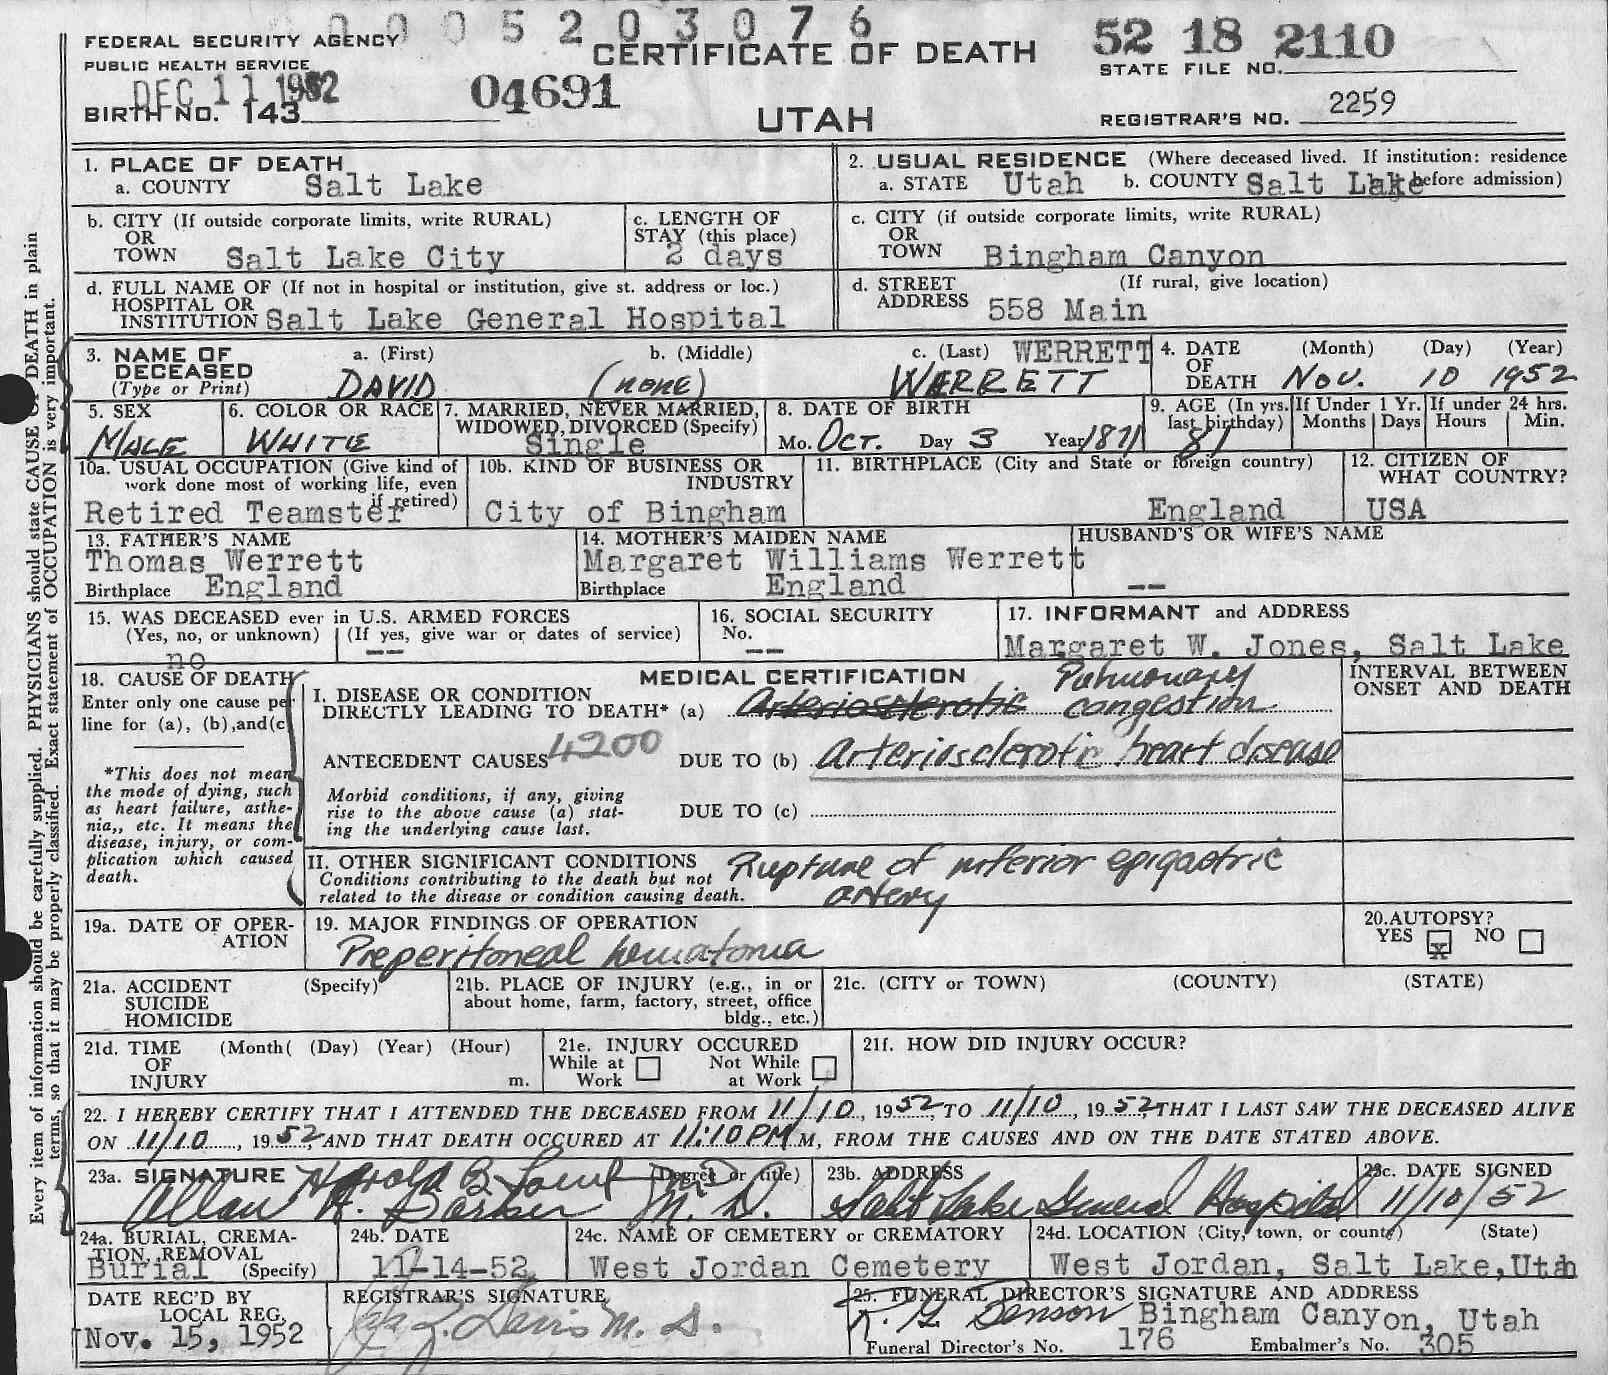 0005203076
FEDERAL SECURITY AGENCY
PUBLIC HEALTH SERVICE
CERTIFICATE OF DEATH
52 18 2110
STATE FILE NO.
DEC 11 1952
04691
BIRTH NO. 143
UTAH
REGISTRAR'S NO. 2259
1. PLACE OF DEATH
a. COUNTY Salt Lake
2. USUAL RESIDENCE (Where deceased lived. If institution: residence before admission)
a. STATE Utah b. COUNTY Salt Lake
b. CITY (If outside corporate limits, write RURAL)
OR
TOWN Salt Lake City
c. LENGTH OF
STAY (this place)
2 days
c. CITY (if outside corporate limits, write RURAL)
OR
TOWN Bingham Canyon
d. FULL NAME OF (If not in hospital or institution, give st. address or loc.)
HOSPITAL OR
INSTITUTION Salt Lake General Hospital
d. STREET (If rural, give location)
ADDRESS 558 Main
3. NAME OF a. (First) b. (Middle) c. (Last) WERRETT
DECEASED
(Type or Print) DAVID (none) WERRETT
4. DATE (Month) (Day) (Year)
OF
DEATH Nov. 10 1952
5. SEX
MALE
6. COLOR OR RACE
WHITE
7. MARRIED, NEVER MARRIED,
WIDOWED, DIVORCED (Specify)
Single
8. DATE OF BIRTH
Mo. OCT. Day 3 Year 1871
9. AGE (In yrs.
last birthday)
81
If Under 1 Yr.
Months Days
If under 24 hrs.
Hours Min.
10a. USUAL OCCUPATION (Give kind of
work done most of working life, even
if retired)
Retired Teamster
10b. KIND OF BUSINESS OR
INDUSTRY
City of Bingham
11. BIRTHPLACE (City and State or foreign country)
England
12. CITIZEN OF
WHAT COUNTRY?
USA
13. FATHER'S NAME
Thomas Werrett
Birthplace England
14. MOTHER'S MAIDEN NAME
Margaret Williams Werrett
Birthplace England
HUSBAND'S OR WIFE'S NAME
--
15. WAS DECEASED ever in U.S. ARMED FORCES
(Yes, no, or unknown) (If yes, give war or dates of service)
no --
16. SOCIAL SECURITY
No.
--
17. INFORMANT and ADDRESS
Margaret W. Jones, Salt Lake
18. CAUSE OF DEATH
Enter only one cause per
line for (a), (b), and (c
*This does not mean
the mode of dying, such
as heart failure, asthe-
nia,, etc. It means the
disease, injury, or com-
plication which caused
death.
MEDICAL CERTIFICATION
I. DISEASE OR CONDITION
DIRECTLY LEADING TO DEATH* (a) Arteriosclerotic Pulmonary congestion
ANTECEDENT CAUSES 4200 DUE TO (b) Arteriosclerotic heart disease
Morbid conditions, if any, giving
rise to the above cause (a) stat-
ing the underlying cause last.
DUE TO (c)
INTERVAL BETWEEN
ONSET AND DEATH
II. OTHER SIGNIFICANT CONDITIONS
Conditions contributing to the death but not
related to the disease or condition causing death.
Rupture of inferior epigastric
artery
19a. DATE OF OPER-
ATION
19. MAJOR FINDINGS OF OPERATION
Preperitoneal hematoma
20. AUTOPSY?
YES X NO
21a. ACCIDENT (Specify)
SUICIDE
HOMICIDE
21b. PLACE OF INJURY (e.g., in or
about home, farm, factory, street, office
bldg., etc.)
21c. (CITY or TOWN) (COUNTY) (STATE)
21d. TIME (Month( (Day) (Year) (Hour)
OF
INJURY m.
21e. INJURY OCCURED
While at Not While
Work at Work
21f. HOW DID INJURY OCCUR?
22. I HEREBY CERTIFY THAT I ATTENDED THE DECEASED FROM 11/10, 1952, TO 11/10, 1952, THAT I LAST SAW THE DECEASED ALIVE
ON 11/10, 1952, AND THAT DEATH OCCURED AT 11:10 PM M, FROM THE CAUSES AND ON THE DATE STATED ABOVE.
23a. SIGNATURE Harold B. (Degree or title) M.D.
Allan H. Barker M.D.
23b. ADDRESS
Salt Lake General Hospital
23c. DATE SIGNED
11/10/52
24a. BURIAL, CREMA-
TION, REMOVAL
Burial (Specify)
24b. DATE
11-14-52
24c. NAME OF CEMETERY or CREMATORY
West Jordan Cemetery
24d. LOCATION (City, town, or county) (State)
West Jordan, Salt Lake, Utah
DATE REC'D BY
LOCAL REG.
Nov. 15, 1952
REGISTRAR'S SIGNATURE
Davis M.D.
25. FUNERAL DIRECTOR'S SIGNATURE AND ADDRESS
R. G. Benson Bingham Canyon, Utah
Funeral Director's No. 176 Embalmer's No. 305
Every item of information should be carefully supplied. PHYSICIANS should state CAUSE OF DEATH in plain
terms, so that it may be properly classified. Exact statement of OCCUPATION is very important.